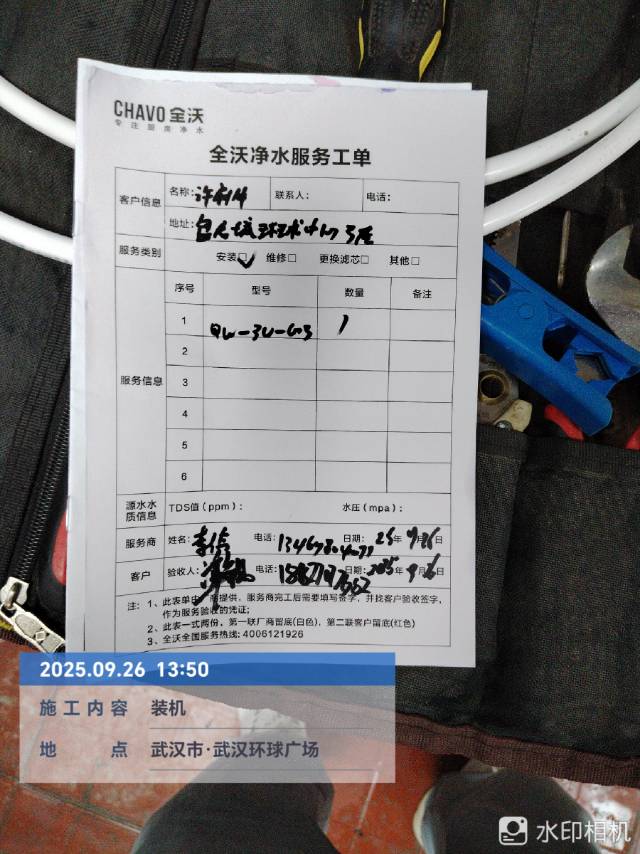 CHAVO 全沃
专注厨房净水
全沃净水服务工单
客户信息 名称: 联系人: 电话:
地址:
服务类别 安装☑ 维修□ 更换滤芯□ 其他□
服务信息 序号 型号 数量 备注
1 QW-3U-G3 1
2
3
4
5
6
源水水质信息 TDS值(ppm): 水压(mpa):
服务商 姓名: 电话: 日期: 25年 9月26日
客户 验收人: 电话: 日期: 2025年 9月26日
注: 1、此表单由厂商提供,服务商完工后需要填写签字,并找客户验收签字,
作为服务验收的凭证;
2、此表一式两份,第一联厂商留底(白色),第二联客户留底(红色)
3、全沃全国服务热线: 4006121926
2025.09.26 13:50
施工内容 装机
地点 武汉市·武汉环球广场
水印相机